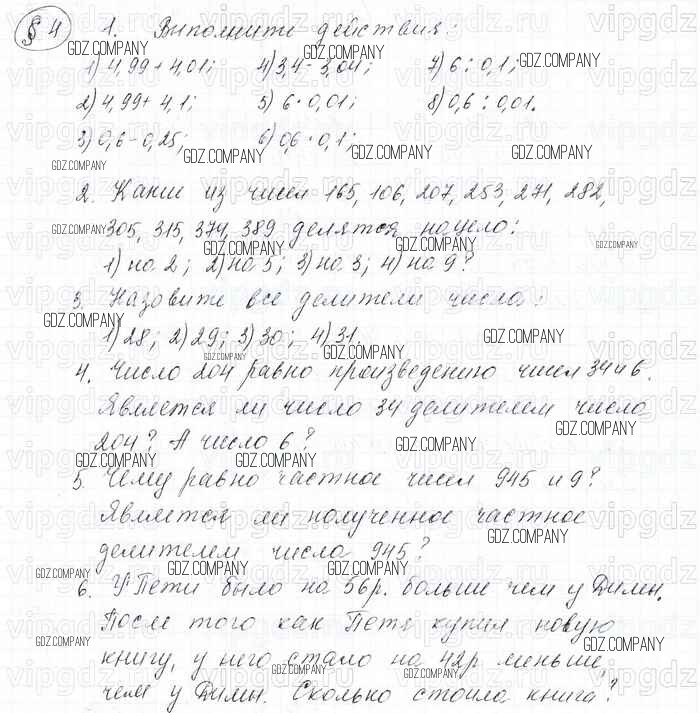 § 4 1. Выполните действия:
1) 4,99 + 4,01; 4) 3,4 - 3,04; 7) 6 : 0,1;
2) 4,99 + 4,1; 5) 6 · 0,01; 8) 0,6 : 0,01.
3) 0,6 - 0,25; 6) 0,6 · 0,1;
2. Какие из чисел 165, 106, 207, 253, 271, 282,
305, 315, 374, 389 делятся нацело:
1) на 2; 2) на 5; 3) на 3; 4) на 9?
3. Назовите все делители числа:
1) 28; 2) 29; 3) 30; 4) 31.
4. Число 204 равно произведению чисел 34 и 6.
Является ли число 34 делителем числа
204? А число 6?
5. Чему равно частное чисел 945 и 9?
Является ли полученное частное
делителем числа 945?
6. У Пети было на 56 р. больше чем у Димы.
После того как Петя купил новую
книгу, у него стало на 42 р меньше,
чем у Димы. Сколько стоила книга?